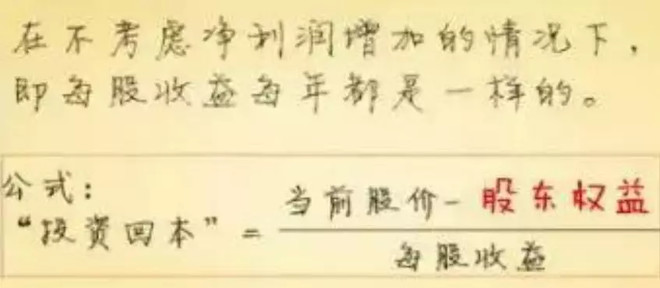 在不考虑净利润增加的情况下，
即每股收益每年都是一样的。
公式：
“投资回本” = 当前股价－股东权益
每股收益